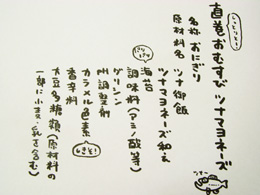 しっとりと!
直巻おむすび ツナマヨネーズ
名称 おにぎり
原材料名 ツナ御飯
ツナマヨネーズ和え
パリパリ
海苔
調味料(アミノ酸等)
グリシン
PH調整剤
カラメル色素
香辛料
大豆多糖類(原材料の
一部に小麦・乳を含む)
ツナー